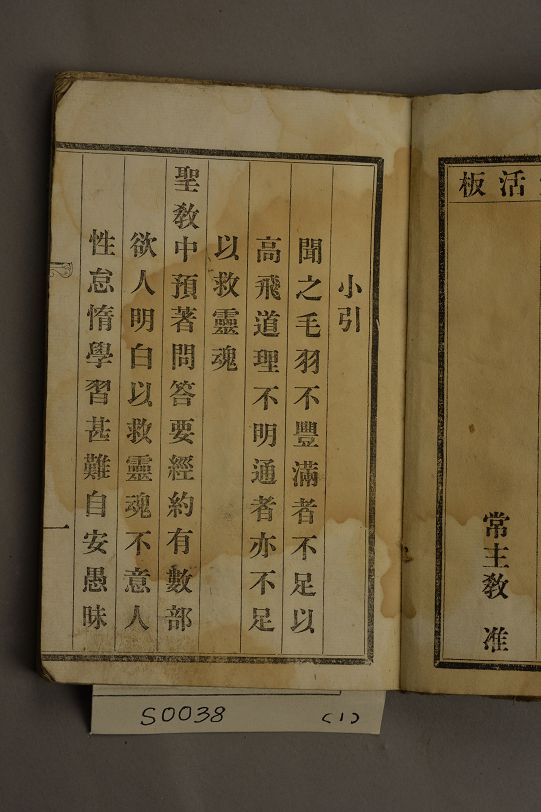 活板
常主教 准
小引
聞之毛羽不豐滿者不足以
高飛道理不明通者亦不足
以救靈魂
聖教中預著問答要經約有數部
欲人明白以救靈魂不意人
性怠惰學習甚難自安愚昧
一
S0038 (1)